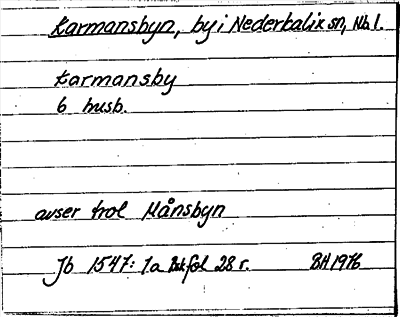 Karmansbyn, by i Nederkalix sn, Nb l.
Karmansby
6 husb.
avser trol Månsbyn
Jb 1547: 1a Bk fol 28 r. BH 1976